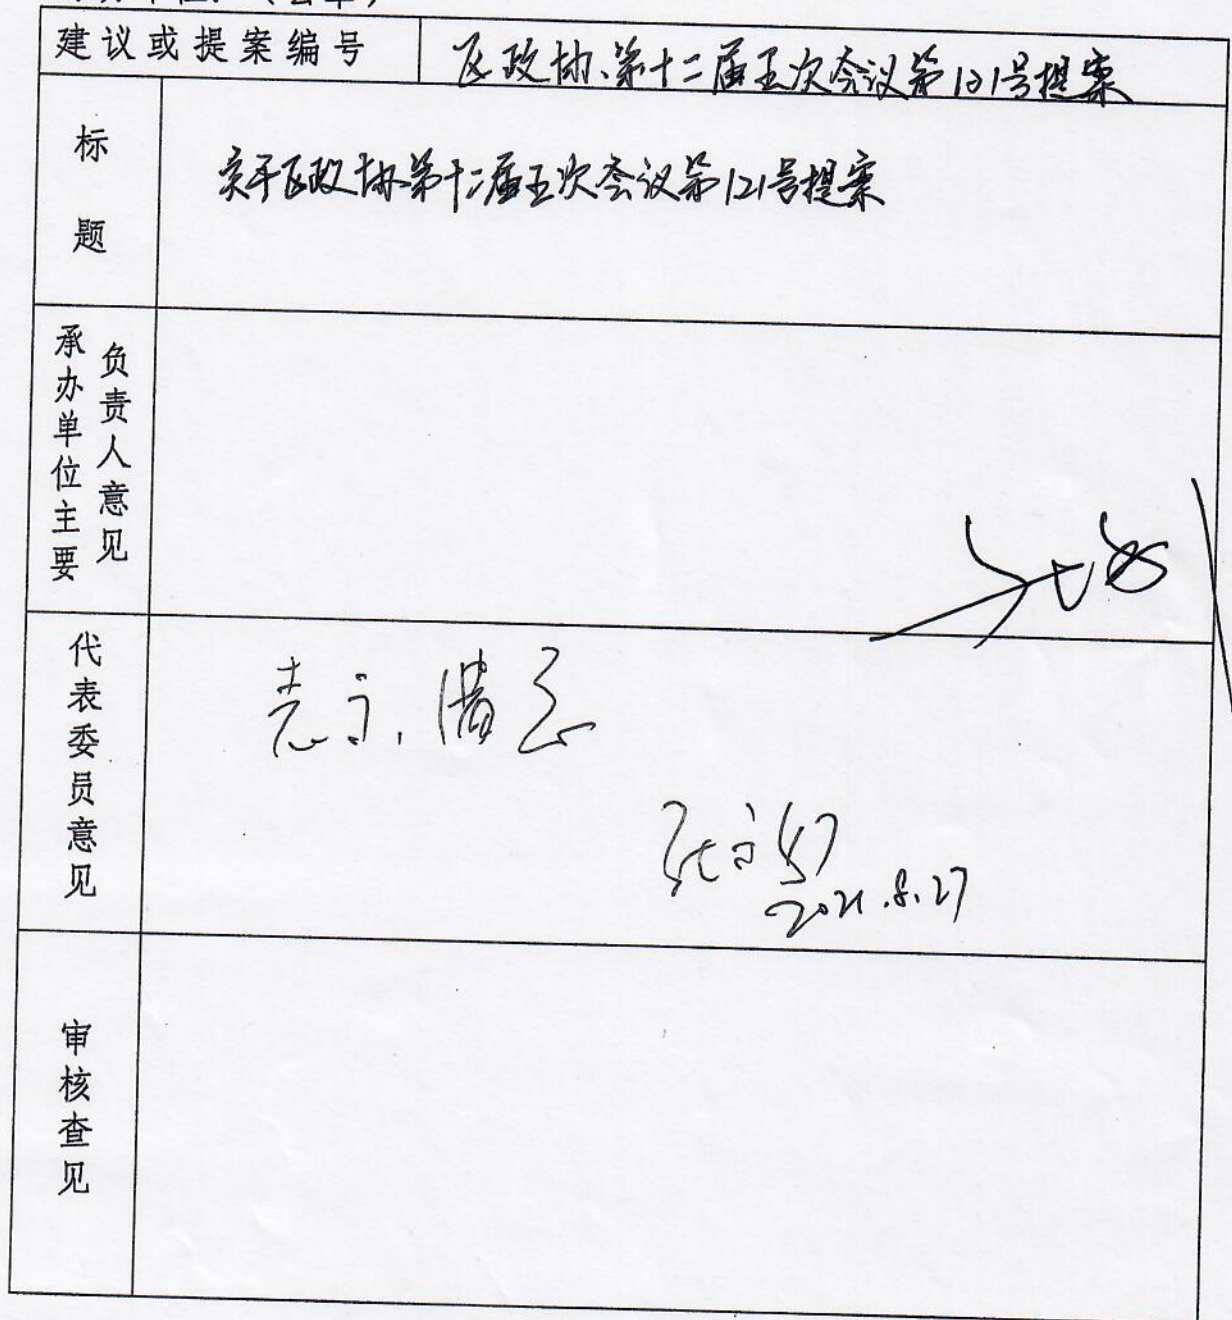 建议或提案编号
区政协第十二届五次会议第121号提案
标题
关于区政协第十二届五次会议第121号提案
承办单位主要
负责人意见
代表委员意见
2021.8.27
审核查见